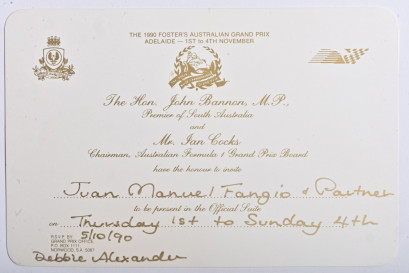 THE 1990 FOSTER'S AUSTRALIAN GRAND PRIX
ADELAIDE — 1ST to 4TH NOVEMBER
The Hon. John Bannon, M.P.,
Premier of South Australia
and
Mr. Ian Cocks
Chairman, Australian Formula 1 Grand Prix Board
have the honour to invite
Juan Manuel Fangio & Partner
to be present in the Official Suite
on Thursday 1st to Sunday 4th
R.S.V.P. BY 5/10/90
GRAND PRIX OFFICE,
P.O. BOX 1111,
NORWOOD, S.A. 5067
Debbie Alexander